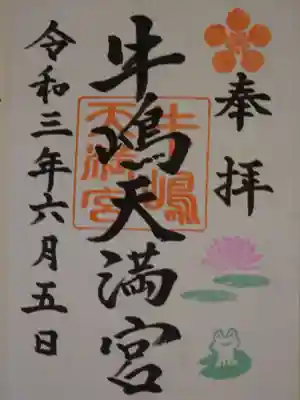 奉拝
牛嶋天満宮
牛嶋
天満宮
令和三年六月五日